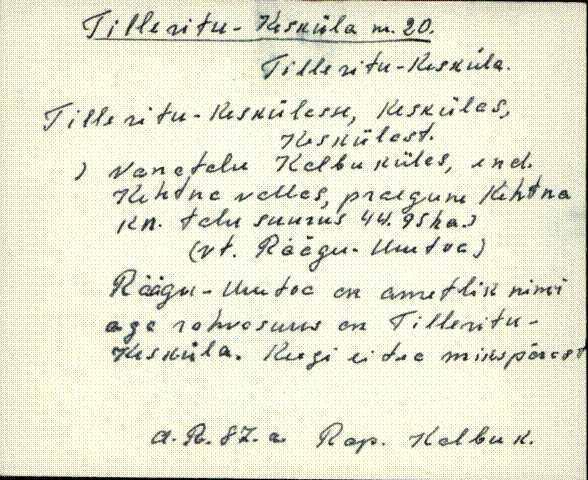 Tilleritu-Kesküla m. 20.
Tilleritu-Kesküla.
Tilleritu-Keskülasse, Keskülas,
Keskülast.
) Vanatalu Kalbu külas, end.
Kehtna vallas, praegune Kehtna
kn. talu suurus 44.95ha.)
(vt. Räägu-Uuetoa)
Räägu-Uuetoa on ametlik nimi
aga rahvasuus on Tilleritu-
Kesküla. Keegi ei tea mikspärast
A.R. 87.a Rap. Kalbu k.